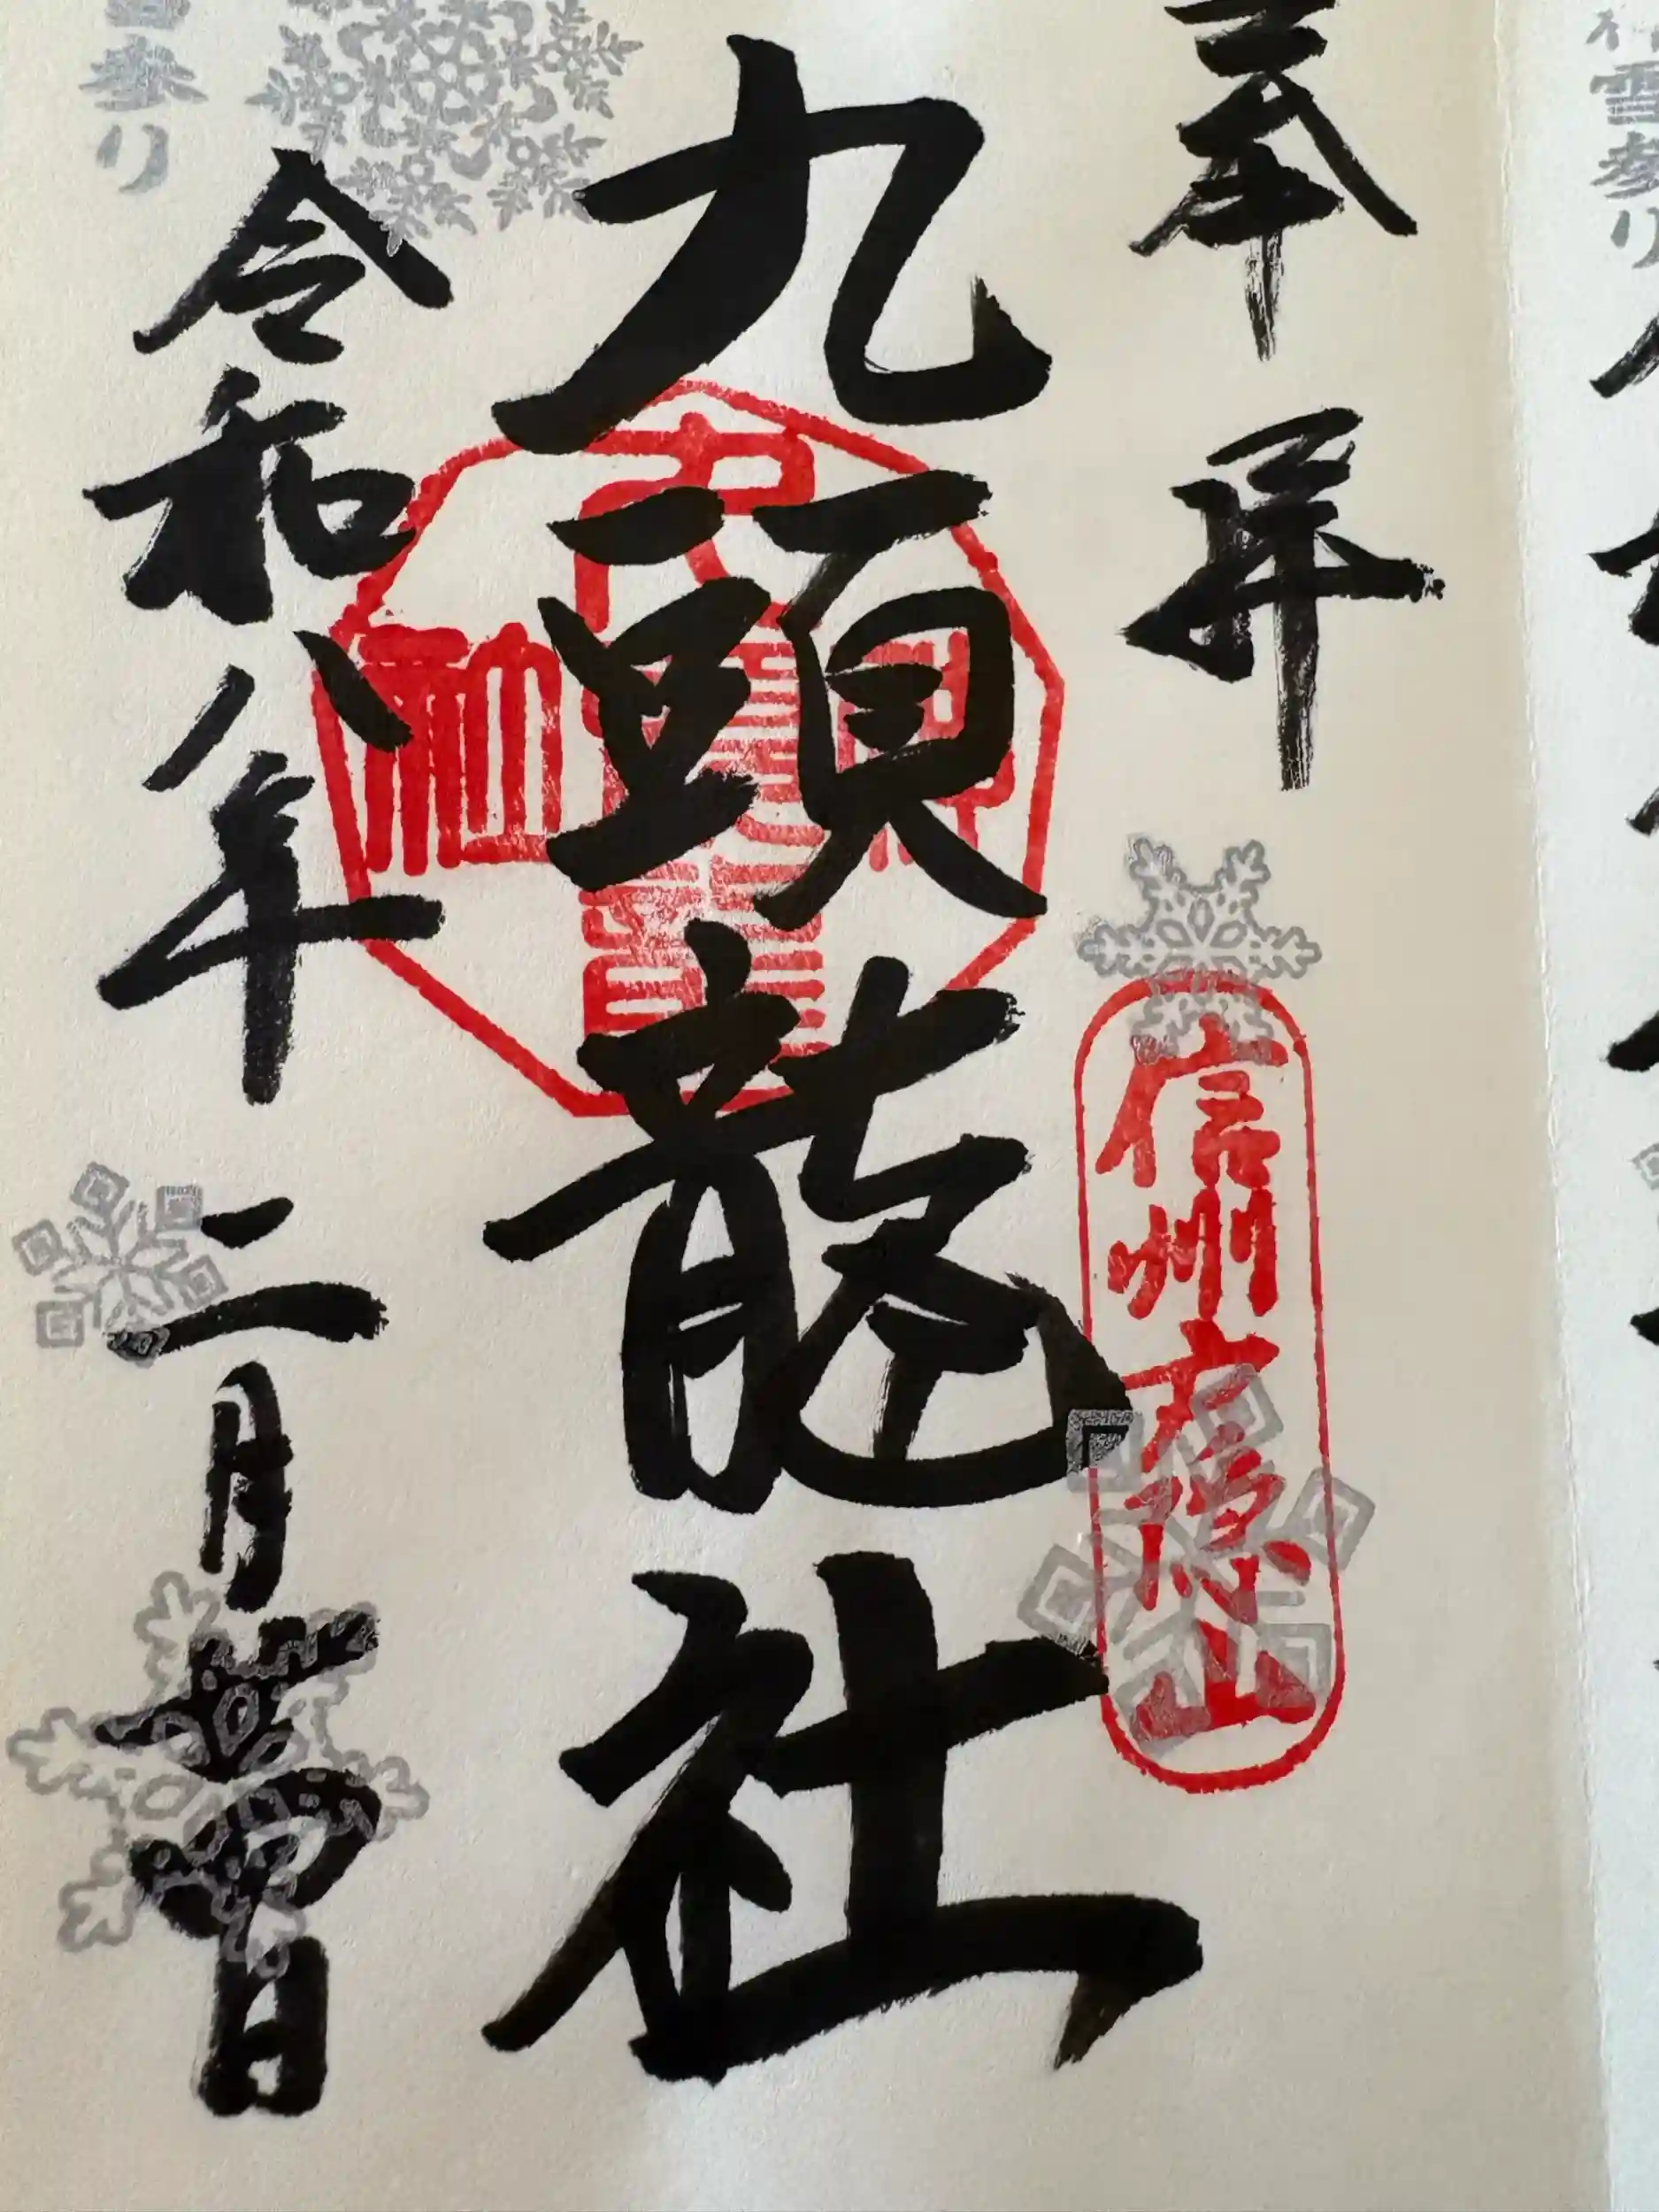 雪参り
奉拝
信州戸隠山
九頭龍社
令和八年二月廿四日
参り